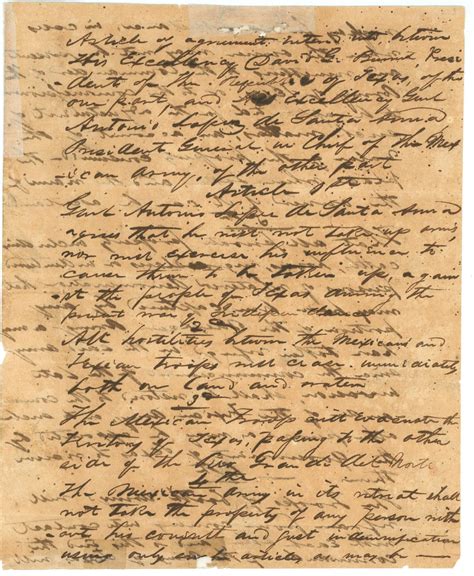 Article of agreement entered into between
His Excellency David G. Burnet Presi
dent of the Republic of Texas of the
one part, and His Excellency Genl
Antonio Lopez de Santa Anna
President General in Chief of the Mex
ican army, of the other part
Article 1st
Genl Antonio Lopez de Santa Anna
agrees that he will not take up arms
nor will exercise his influence to
cause them to be taken up again
st the people of Texas during the
present war of Independence
2
All hostilities between the Mexican and
Texian troops will cease immediately
both on land and water
3
The Mexican Troops will evacuate the
Territory of Texas, passing to the other
side of the Rio Grande del Norte
4th
The Mexican Army in its retreat shall
not take the property of any person with
out his consent and just indemnification
using only such articles as may be